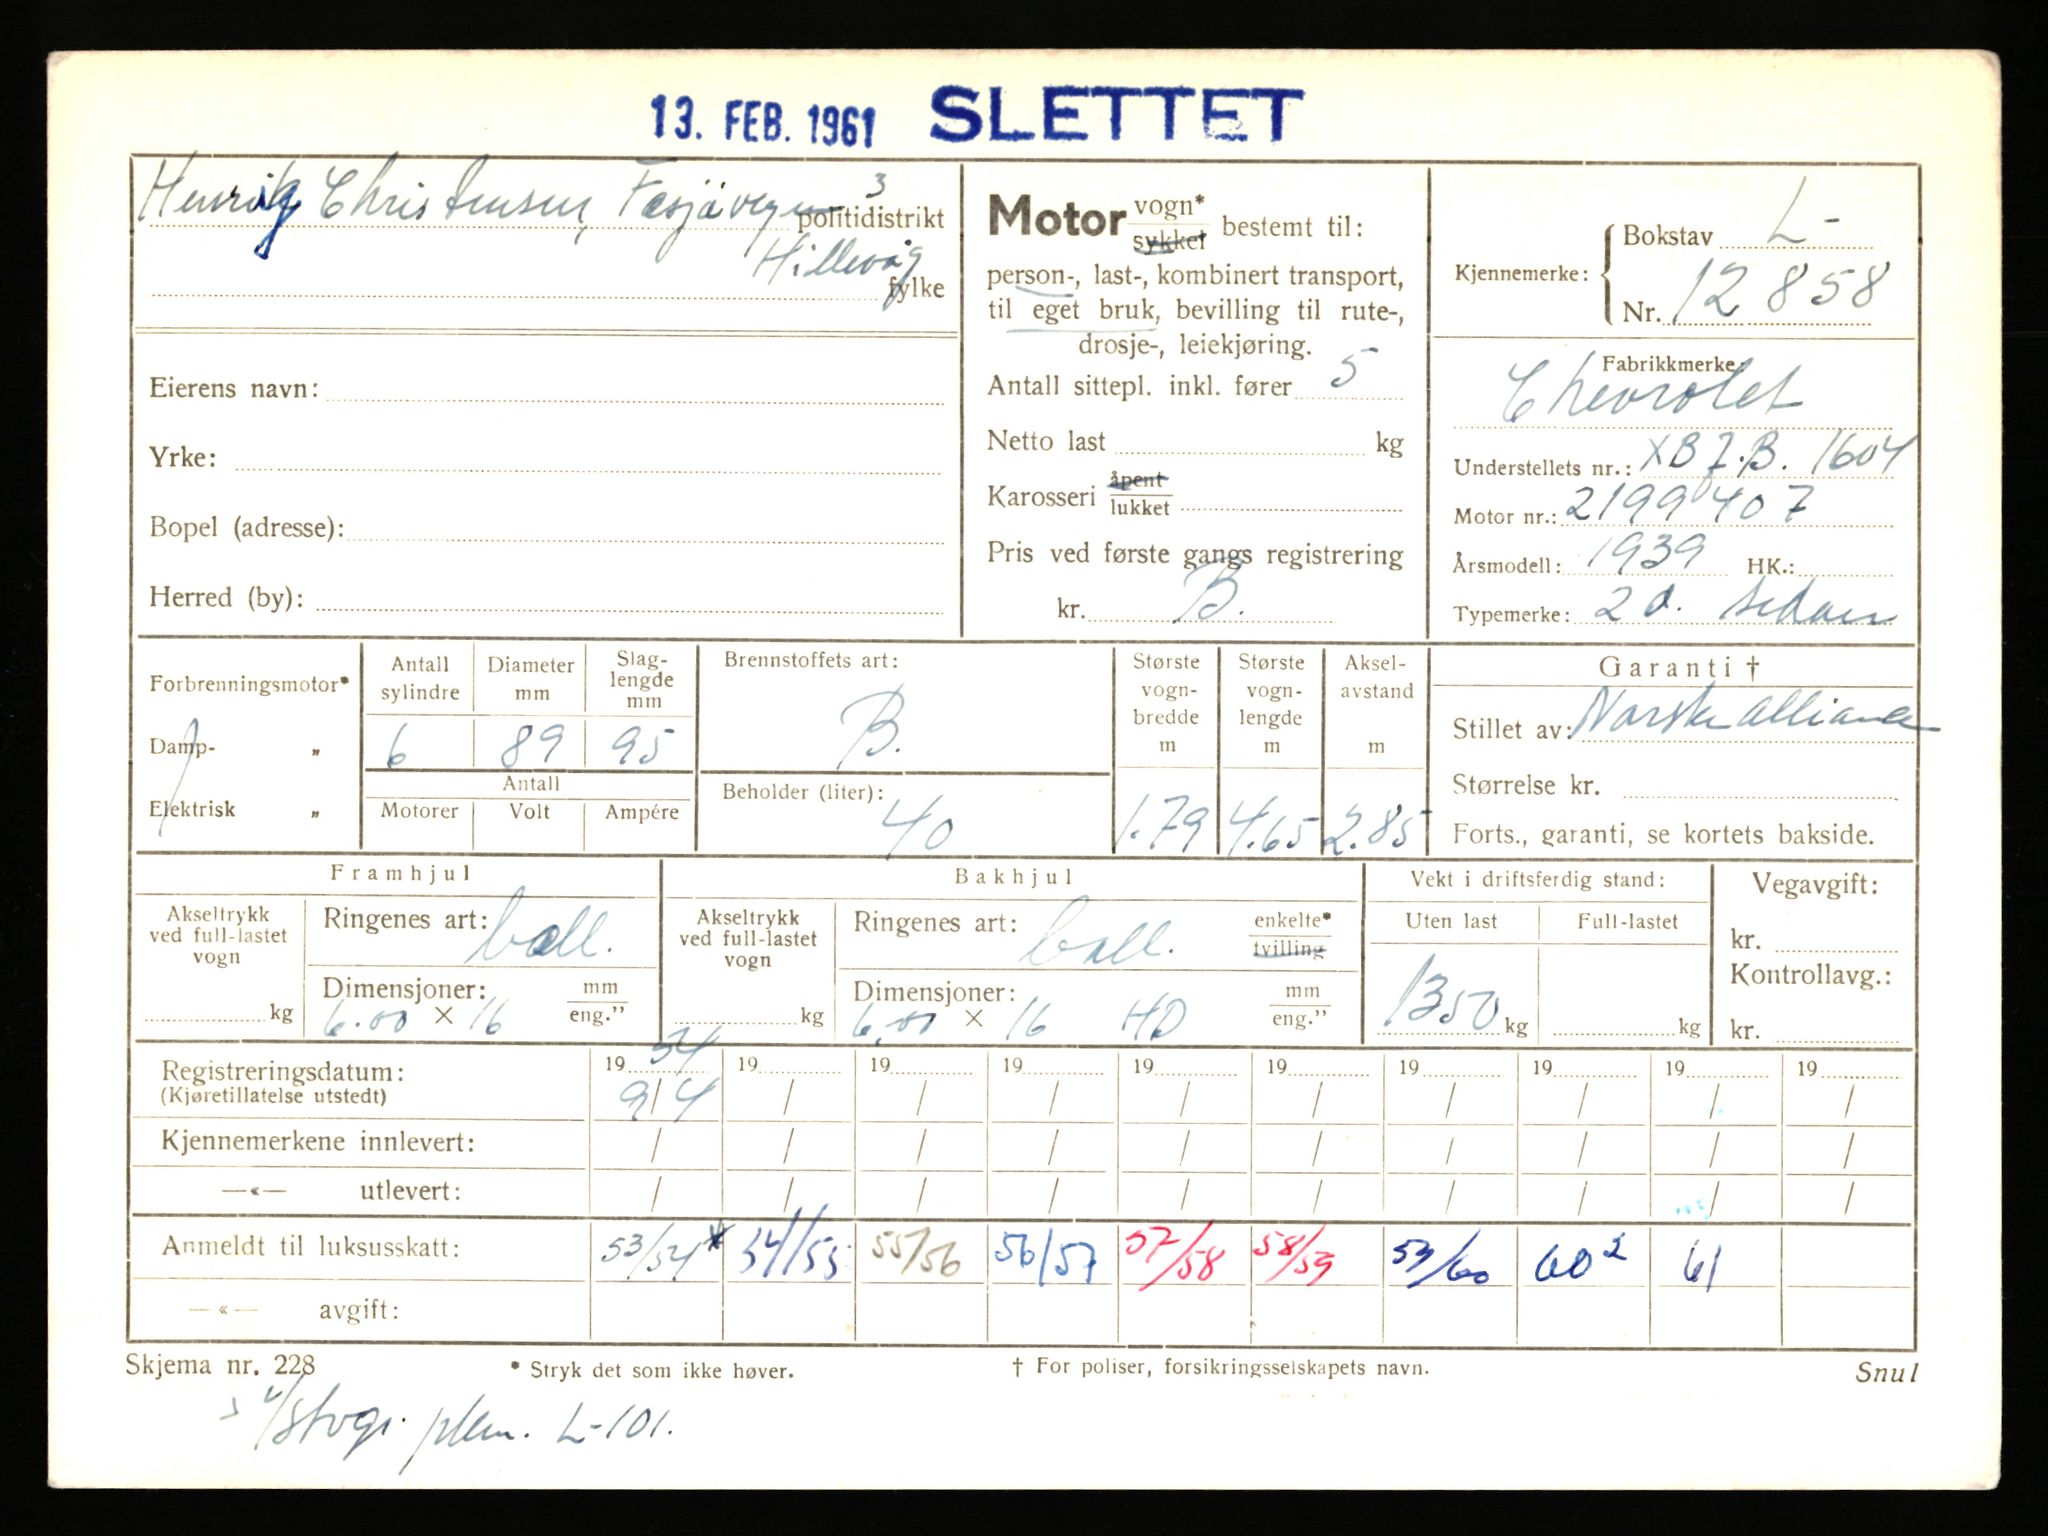 13. FEB. 1961 SLETTET
Henrik Christensen, 3
politidistrikt
Hillevåg
fylke
Eierens navn:
Yrke:
Bopel (adresse):
Herred (by):
Motor vogn* sykkel bestemt til:
person-, last-, kombinert transport,
til eget bruk, bevilling til rute-,
drosje-, leiekjøring.
Antall sittepl. inkl. fører 5
Netto last kg
Karosseri åpent lukket
Pris ved første gangs registrering
kr. B.
Kjennemerke: Bokstav L-
Nr. 12858
Fabrikkmerke:
Chevrolet
Understellets nr.: XB7.B. 1604
Motor nr.: 2199407
Årsmodell: 1939 HK.:
Typemerke: 2 d. sedan
Forbrenningsmotor*
Damp- „
Elektrisk „
Antall sylindre
6
Diameter mm
89
Slag-
lengde
mm
95
Antall
Motorer Volt Ampére
Brennstoffets art:
B.
Beholder (liter):
40
Største
vogn-
bredde
m
1.79
Største
vogn-
lengde
m
4.65
Aksel-
avstand
m
2.85
Garanti †
Stillet av: Norske alliance
Størrelse kr.
Forts., garanti, se kortets bakside.
Framhjul
Akseltrykk
ved full-lastet
vogn
kg
Ringenes art: ball.
Dimensjoner: mm
6.00 × 16 eng."
Bakhjul
Akseltrykk
ved full-lastet
vogn
kg
Ringenes art: ball. enkelte* tvilling
Dimensjoner: mm
6.00 × 16 HD eng."
Vekt i driftsferdig stand:
Uten last Full-lastet
1350 kg kg
Vegavgift:
kr.
Kontrollavg.:
kr.
Registreringsdatum: 1954 19 19 19 19 19 19 19 19 19
(Kjøretillatelse utstedt) 9/4 / / / / / / / / /
Kjennemerkene innlevert: / / / / / / / / / /
—«— utlevert: / / / / / / / / / /
Anmeldt til luksusskatt: 53/54* 54/55 55/56 56/57 57/58 58/59 59/60 60² 61
—«— avgift:
Skjema nr. 228 * Stryk det som ikke høver. † For poliser, forsikringsselskapets navn. Snul
L-101.